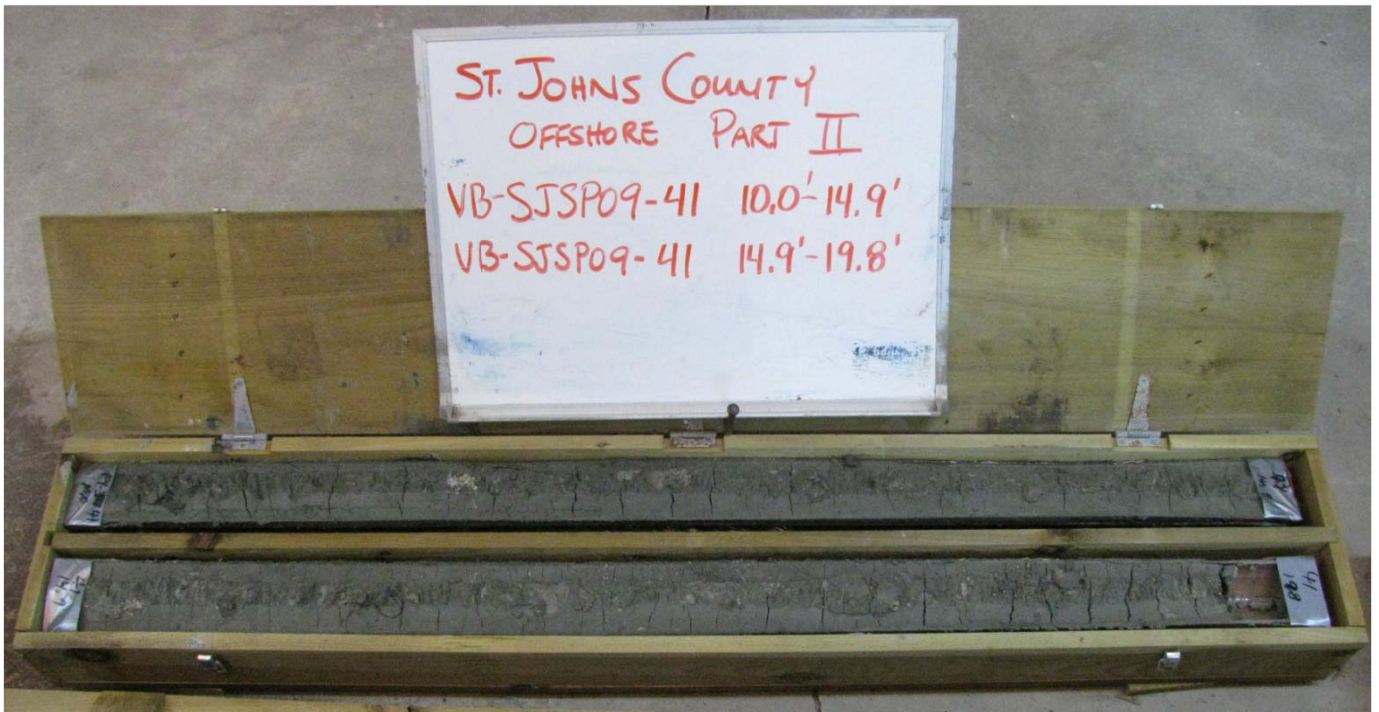 ST. JOHNS COUNTY
OFFSHORE PART II
VB-SJSP09-41 10.0'-14.9'
VB-SJSP09-41 14.9'-19.8'
14.9
41
19.8